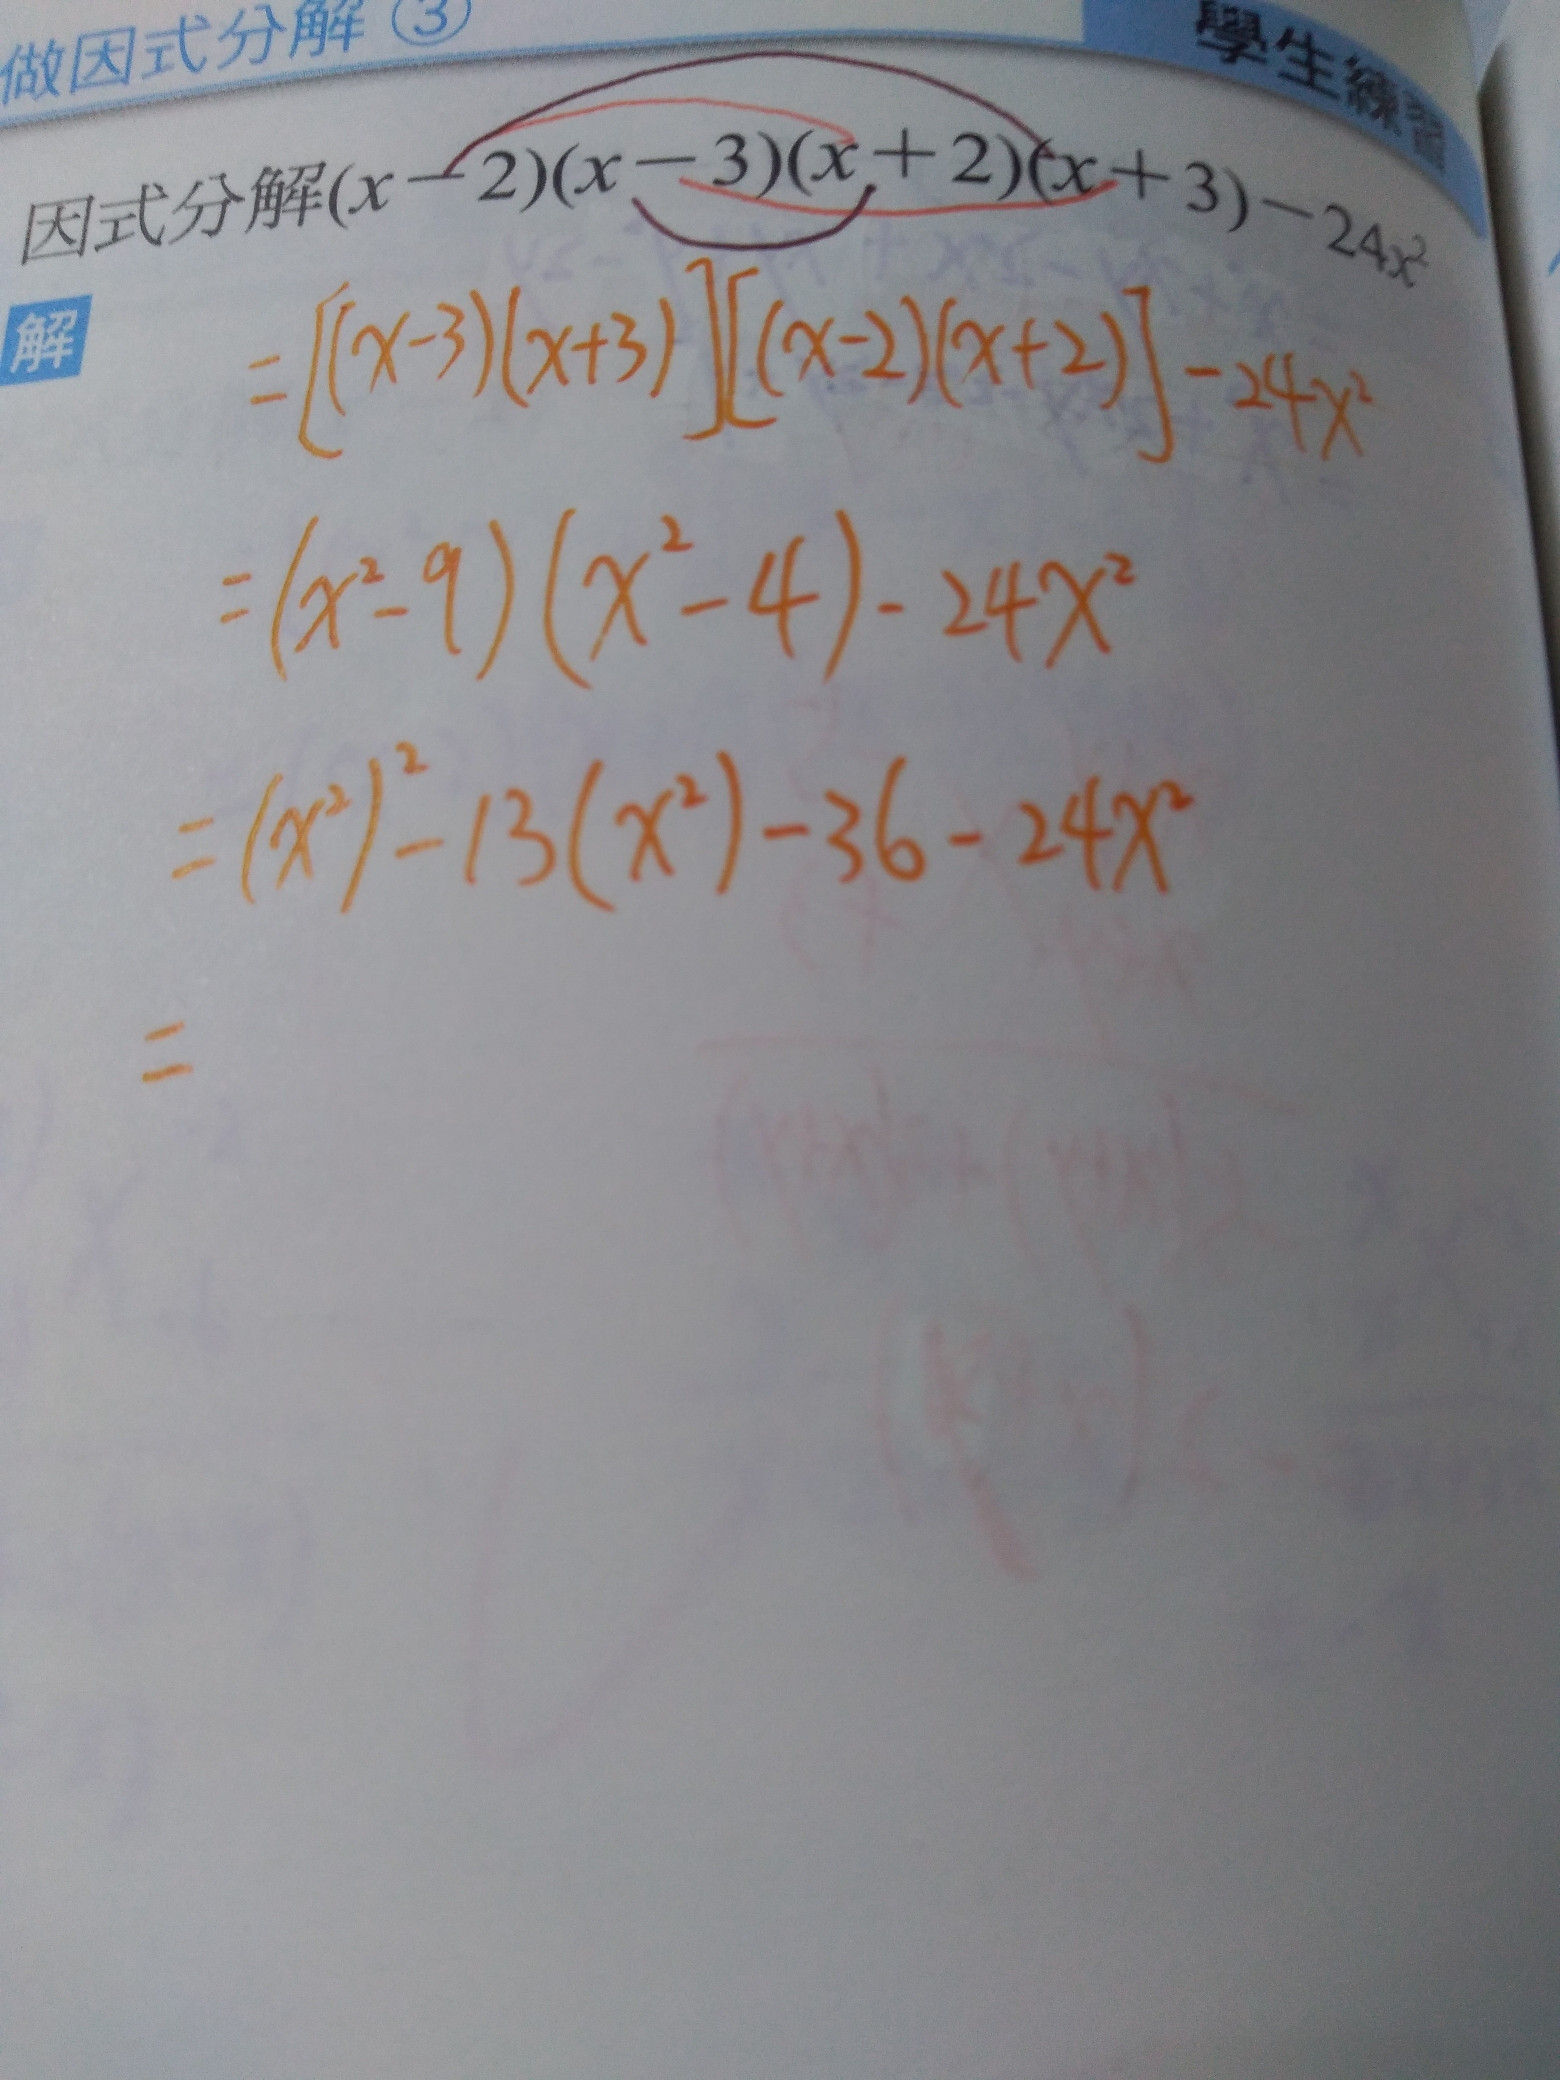 做因式分解 ③
學生練習
因式分解(x－2)(x－3)(x＋2)(x＋3)－24x²
解
=[(x-3)(x+3)][(x-2)(x+2)]-24x²
=(x²-9)(x²-4)-24x²
=(x²)²-13(x²)-36-24x²
=